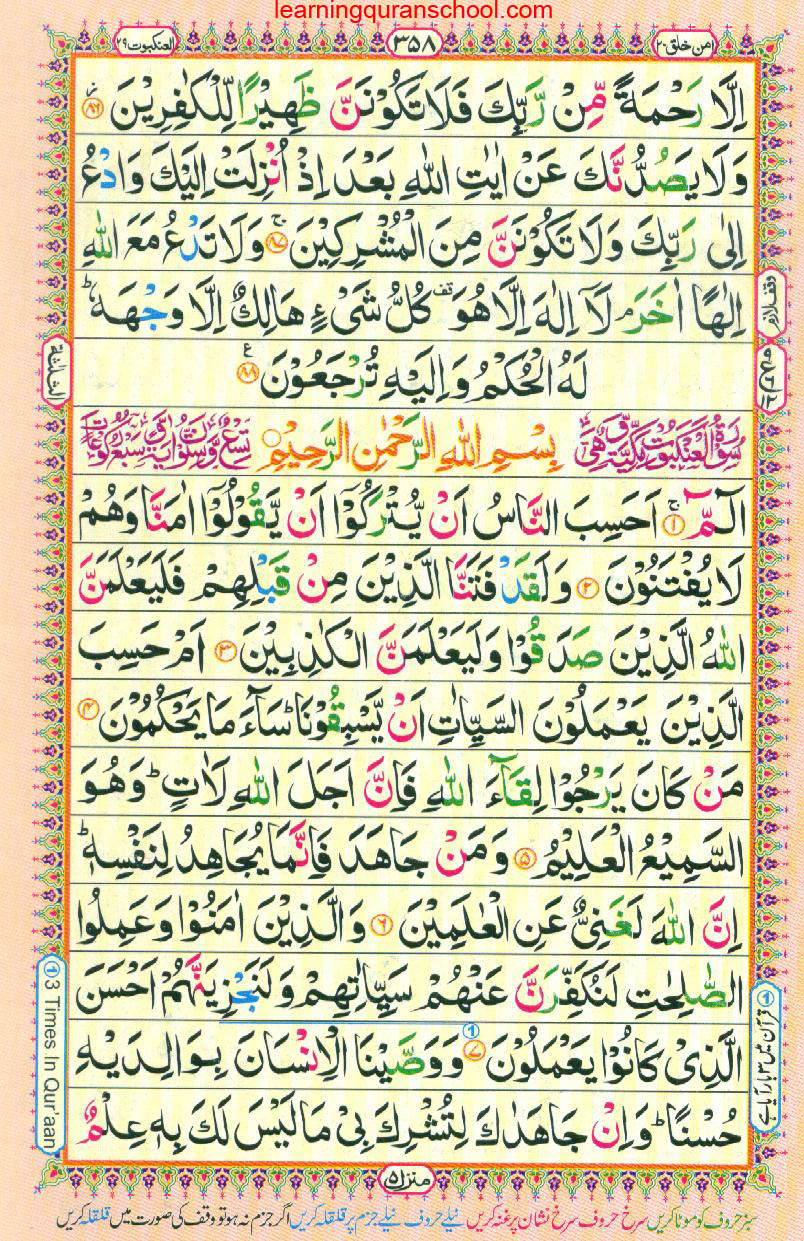 learningquranschool.com
العنكبوت ٢٩
٣٥٨
امن خلق ٢٠
اِلَّا رَحْمَةً مِّنْ رَّبِّكَ فَلَا تَكُوْنَنَّ ظَهِيْرًا لِّلْكٰفِرِيْنَ ۝٨٦
وَلَا يَصُدُّنَّكَ عَنْ اٰيٰتِ اللّٰهِ بَعْدَ اِذْ اُنْزِلَتْ اِلَيْكَ وَادْعُ
اِلٰى رَبِّكَ وَلَا تَكُوْنَنَّ مِنَ الْمُشْرِكِيْنَ ۝٨٧ۚ وَلَا تَدْعُ مَعَ اللّٰهِ
اِلٰهًا اٰخَرَ ۘ لَآ اِلٰهَ اِلَّا هُوَ قف كُلُّ شَىْءٍ هَالِكٌ اِلَّا وَجْهَهٗ ؕ
وقف لازم
لَهُ الْحُكْمُ وَاِلَيْهِ تُرْجَعُوْنَ ۝٨٨ ع
الثلثة
سُوْرَةُ الْعَنْكَبُوْتِ مَكِّيَّةٌ وَّهِىَ
بِسْمِ اللّٰهِ الرَّحْمٰنِ الرَّحِيْمِ
تِسْعٌ وَّسِتُّوْنَ اٰيَةً وَّسَبْعُ رُكُوْعَاتٍ
الٓمّٓ ۝١ۚ اَحَسِبَ النَّاسُ اَنْ يُّتْرَكُوْٓا اَنْ يَّقُوْلُوْٓا اٰمَنَّا وَهُمْ
لَا يُفْتَنُوْنَ ۝٢ وَلَقَدْ فَتَنَّا الَّذِيْنَ مِنْ قَبْلِهِمْ فَلَيَعْلَمَنَّ
اللّٰهُ الَّذِيْنَ صَدَقُوْا وَلَيَعْلَمَنَّ الْكٰذِبِيْنَ ۝٣ اَمْ حَسِبَ
الَّذِيْنَ يَعْمَلُوْنَ السَّيِّاٰتِ اَنْ يَّسْبِقُوْنَا ؕ سَآءَ مَا يَحْكُمُوْنَ ۝٤
مَنْ كَانَ يَرْجُوْا لِقَآءَ اللّٰهِ فَاِنَّ اَجَلَ اللّٰهِ لَاٰتٍ ؕ وَهُوَ
السَّمِيْعُ الْعَلِيْمُ ۝٥ وَمَنْ جَاهَدَ فَاِنَّمَا يُجَاهِدُ لِنَفْسِهٖ ؕ
اِنَّ اللّٰهَ لَغَنِىٌّ عَنِ الْعٰلَمِيْنَ ۝٦ وَالَّذِيْنَ اٰمَنُوْا وَعَمِلُوا
الصّٰلِحٰتِ لَنُكَفِّرَنَّ عَنْهُمْ سَيِّاٰتِهِمْ وَلَنَجْزِيَنَّهُمْ اَحْسَنَ
الَّذِىْ كَانُوْا يَعْمَلُوْنَ ۝٧ ① وَوَصَّيْنَا الْاِنْسَانَ بِوَالِدَيْهِ
حُسْنًا ؕ وَاِنْ جَاهَدٰكَ لِتُشْرِكَ بِىْ مَا لَيْسَ لَكَ بِهٖ عِلْمٌ
① 3 Times In Qur'aan
① قرآن میں ۳ بار آیا ہے
منزل ۵
سبز حروف کو موٹا کریں سرخ حروف سرخ نشان پر غنہ کریں نیلے حروف نیلے جزم پر قلقلہ کریں اگر جزم نہ ہو تو وقف کی صورت میں قلقلہ کریں